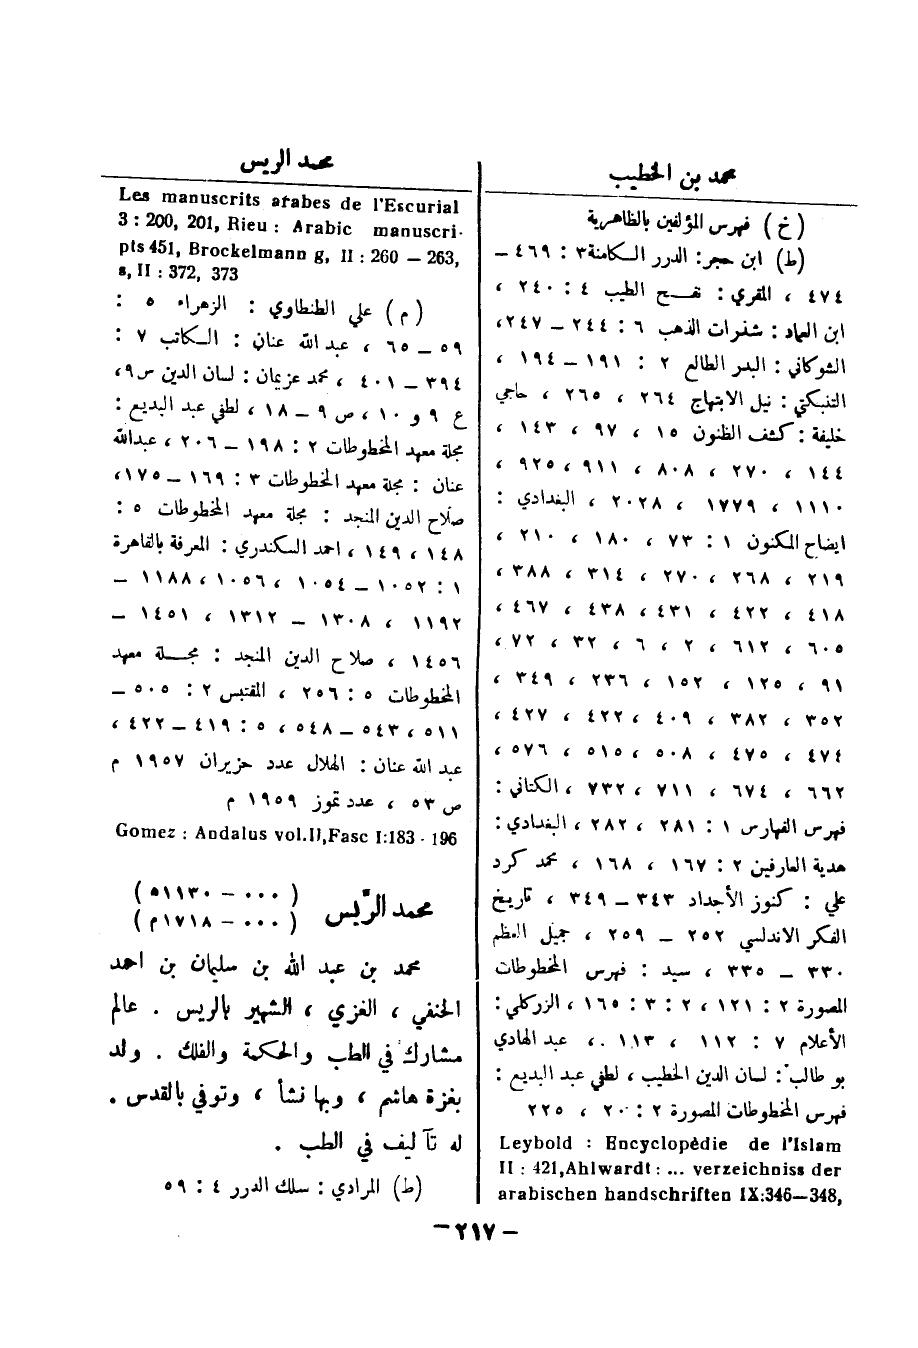 محمد بن الخطيب
(خ) فهرس المؤلفين بالظاهرية
(ط) ابن حجر: الدرر الكامنة ٣ : ٤٦٩ –
٤٧٤ ، المقري : نفح الطيب ٤ : ٢٤٠ ،
ابن العماد : شذرات الذهب ٦ : ٢٤٤ – ٢٤٧،
الشوكاني : البدر الطالع ٢ : ١٩١ – ١٩٤ ،
التنبكتي : نيل الابتهاج ٢٦٤ ، ٢٦٥ ، حاجي
خليفة : كشف الظنون ١٥ ، ٩٧ ، ١٤٣ ،
١٤٤ ، ٢٧٠ ، ٨٠٨ ، ٩١١ ، ٩٢٥ ،
١١١٠ ، ١٧٧٩ ، ٢٠٢٨ ، البغدادي :
ايضاح المكنون ١ : ٧٣ ، ١٨٠ ، ٢١٠ ،
٢١٩ ، ٢٦٨ ، ٢٧٠ ، ٣١٤ ، ٣٨٨ ،
٤١٨ ، ٤٢٢ ، ٤٣١ ، ٤٣٨ ، ٤٦٧ ،
٦٠٥ ، ٦١٢ ، ٢ ، ٦ ، ٣٢ ، ٧٢ ،
٩١ ، ١٢٥ ، ١٥٢ ، ٢٣٦ ، ٣٤٩ ،
٣٥٢ ، ٣٨٢ ، ٤٠٩ ، ٤٢٢ ، ٤٢٧ ،
٤٧٤ ، ٤٧٥ ، ٥٠٨ ، ٥١٥ ، ٥٧٦ ،
٦٦٢ ، ٦٧٤ ، ٧١١ ، ٧٣٢ ، الكتاني :
فهرس الفهارس ١ : ٢٨١ ، ٢٨٢ ، البغدادي :
هدية العارفين ٢ : ١٦٧ ، ١٦٨ ، محمد كرد
علي : كنوز الأجداد ٣٤٣ – ٣٤٩ ، تاريخ
الفكر الاندلسي ٢٥٢ – ٢٥٩ ، جميل العظم
٣٣٠ – ٣٣٥ ، سيد : فهرس المخطوطات
المصورة ٢ : ١٢١ ، ٢ : ٣ : ١٦٥ ، الزركلي :
الأعلام ٧ : ١١٢ ، ١١٣ ، عبد الهادي
بو طالب : لسان الدين الخطيب ، لطفي عبد البديع :
فهرس المخطوطات المصورة ٢ : ٢٠ ، ٢٢٥
Leybold : Encyclopédie de l'Islam
II : 421, Ahlwardt : ... verzeichniss der
arabischen handschriften IX:346—348,
محمد الريس
Les manuscrits arabes de l'Escurial
3 : 200, 201, Rieu : Arabic manuscri-
pts 451, Brockelmann g, II : 260 – 263,
s, II : 372, 373
(م) علي الطنطاوي : الزهراء ٥ :
٥٩ – ٦٥ ، عبد الله عنان : الكاتب ٧ :
٣٩٤ – ٤٠١ ، محمد عزيمان : لسان الدين س ٩،
ع ٩ و ١٠ ، ص ٩ – ١٨ ، لطفي عبد البديع :
مجلة معهد المخطوطات ٢ : ١٩٨ – ٢٠٦ ، عبدالله
عنان : مجلة معهد المخطوطات ٣ : ١٦٩ – ١٧٥،
صلاح الدين المنجد : مجلة معهد المخطوطات ٥ :
١٤٨ ، ١٤٩ ، احمد السكندري : المعرفة بالقاهرة
١ : ١٠٥٢ – ١٠٥٤ ، ١٠٥٦ ، ١١٨٨ –
١١٩٢ ، ١٣٠٨ – ١٣١٢ ، ١٤٥١ –
١٤٥٦ ، صلاح الدين المنجد : مجلة معهد
المخطوطات ٥ : ٢٥٦ ، المقتبس ٢ : ٥٠٥ –
٥١١ ، ٥٤٣ – ٥٤٨ ، ٥ : ٤١٩ – ٤٢٢ ،
عبد الله عنان : الهلال عدد حزيران ١٩٥٧ م
ص ٥٣ ، عدد تموز ١٩٥٩ م
Gomez : Andalus vol.II,Fasc I:183 - 196
محمد الريّس ( ٠٠٠ – ١١٣٠ ه )
( ٠٠٠ – ١٧١٨ م )
محمد بن عبد الله بن سليمان بن احمد
الحنفي ، الغزي ، الشهير بالريس . عالم
مشارك في الطب والحكمة والفلك . ولد
بغزة هاشم ، وبها نشأ ، وتوفي بالقدس .
له تآليف في الطب .
(ط) المرادي : سلك الدرر ٤ : ٥٩
– ٢١٧ –